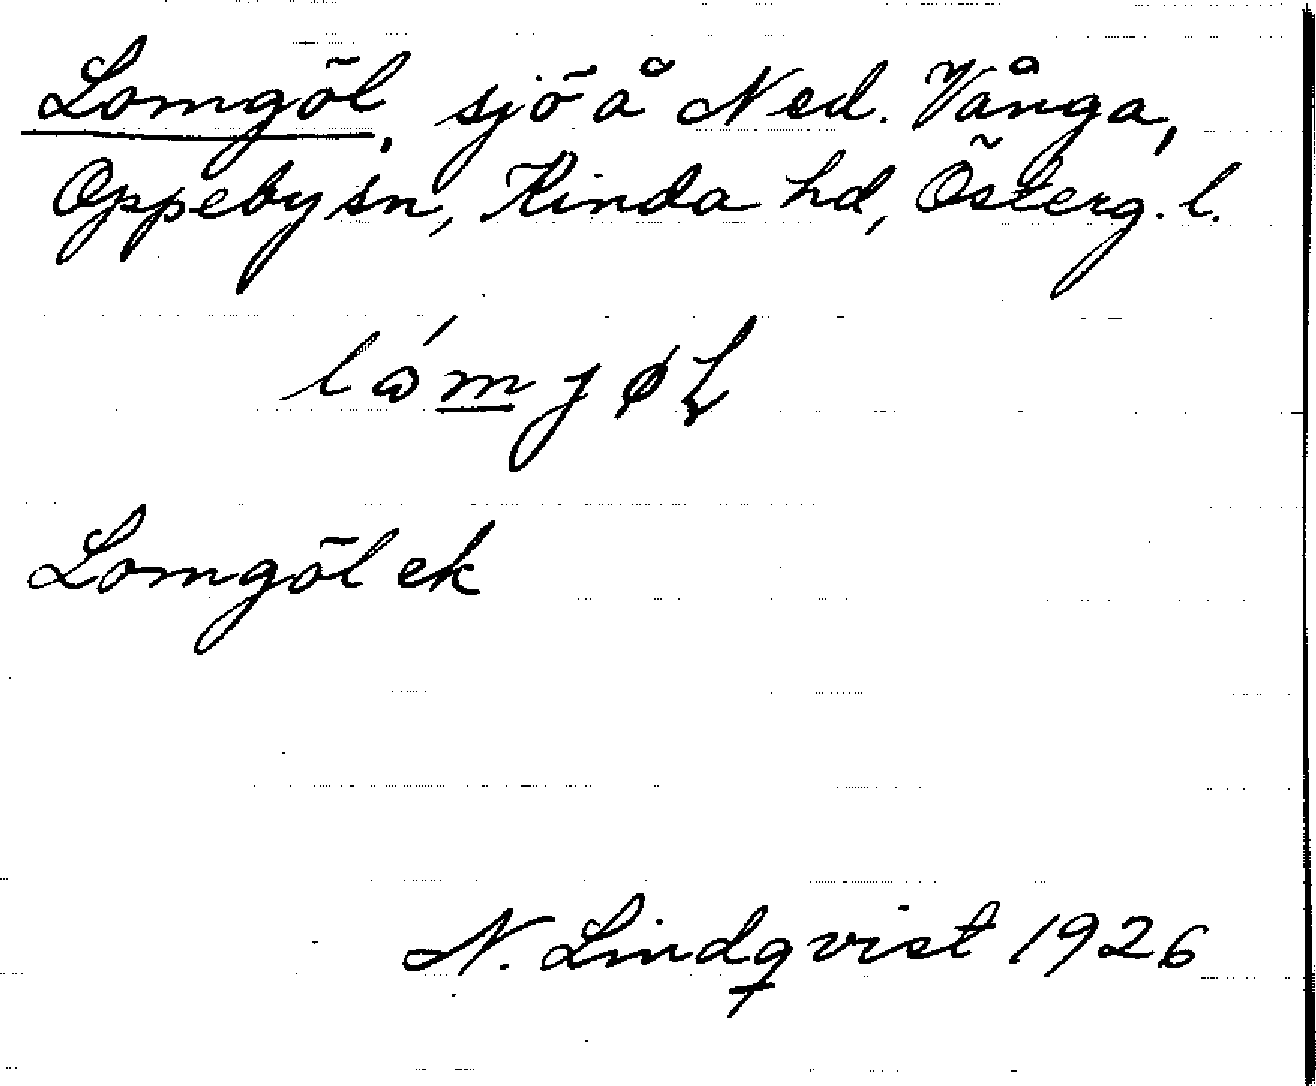 Lomgöl, sjö å Ned. Vånga,
Oppeby sn, Kinda hd, Österg. l.
Lomgöl ek
N. Lindqvist 1926